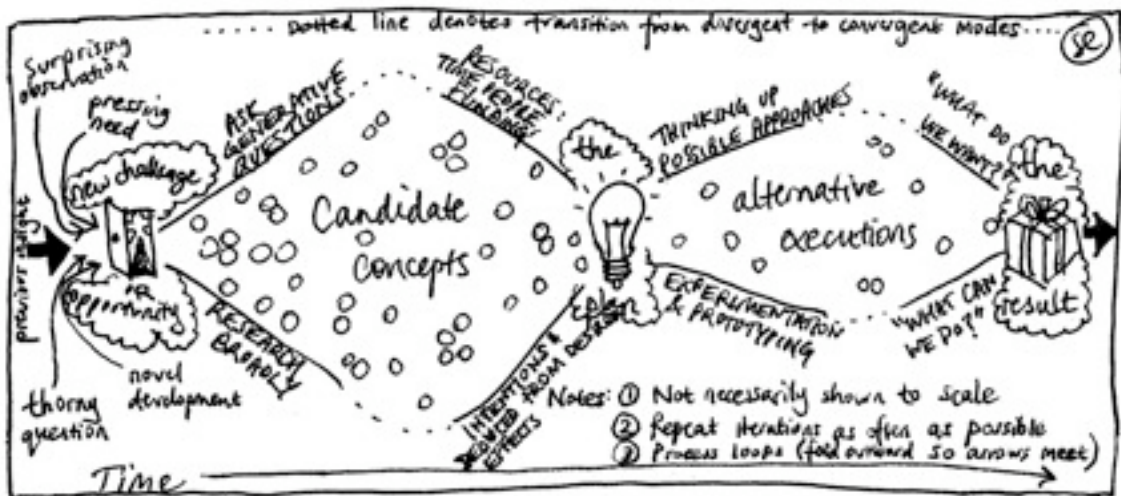 ..... dotted line denotes transition from divergent to convergent modes ....
SE
surprising
observation
pressing
need
new challenge
OR
opportunity
previous insight
thorny
question
novel
development
ASK
GENERATIVE
QUESTIONS
RESEARCH
BROADLY
Candidate
concepts
RESOURCES:
TIME, PEOPLE,
FUNDING
INTENTIONS &
DEDUCED FROM DESIRED
EFFECTS
the
plan
THINKING UP
POSSIBLE APPROACHES
EXPERIMENTATION
& PROTOTYPING
alternative
executions
"WHAT DO
WE WANT?"
"WHAT CAN
WE DO?"
the
result
Notes: ① Not necessarily shown to scale
② Repeat iterations as often as possible
③ Process loops (fold around so arrows meet)
Time